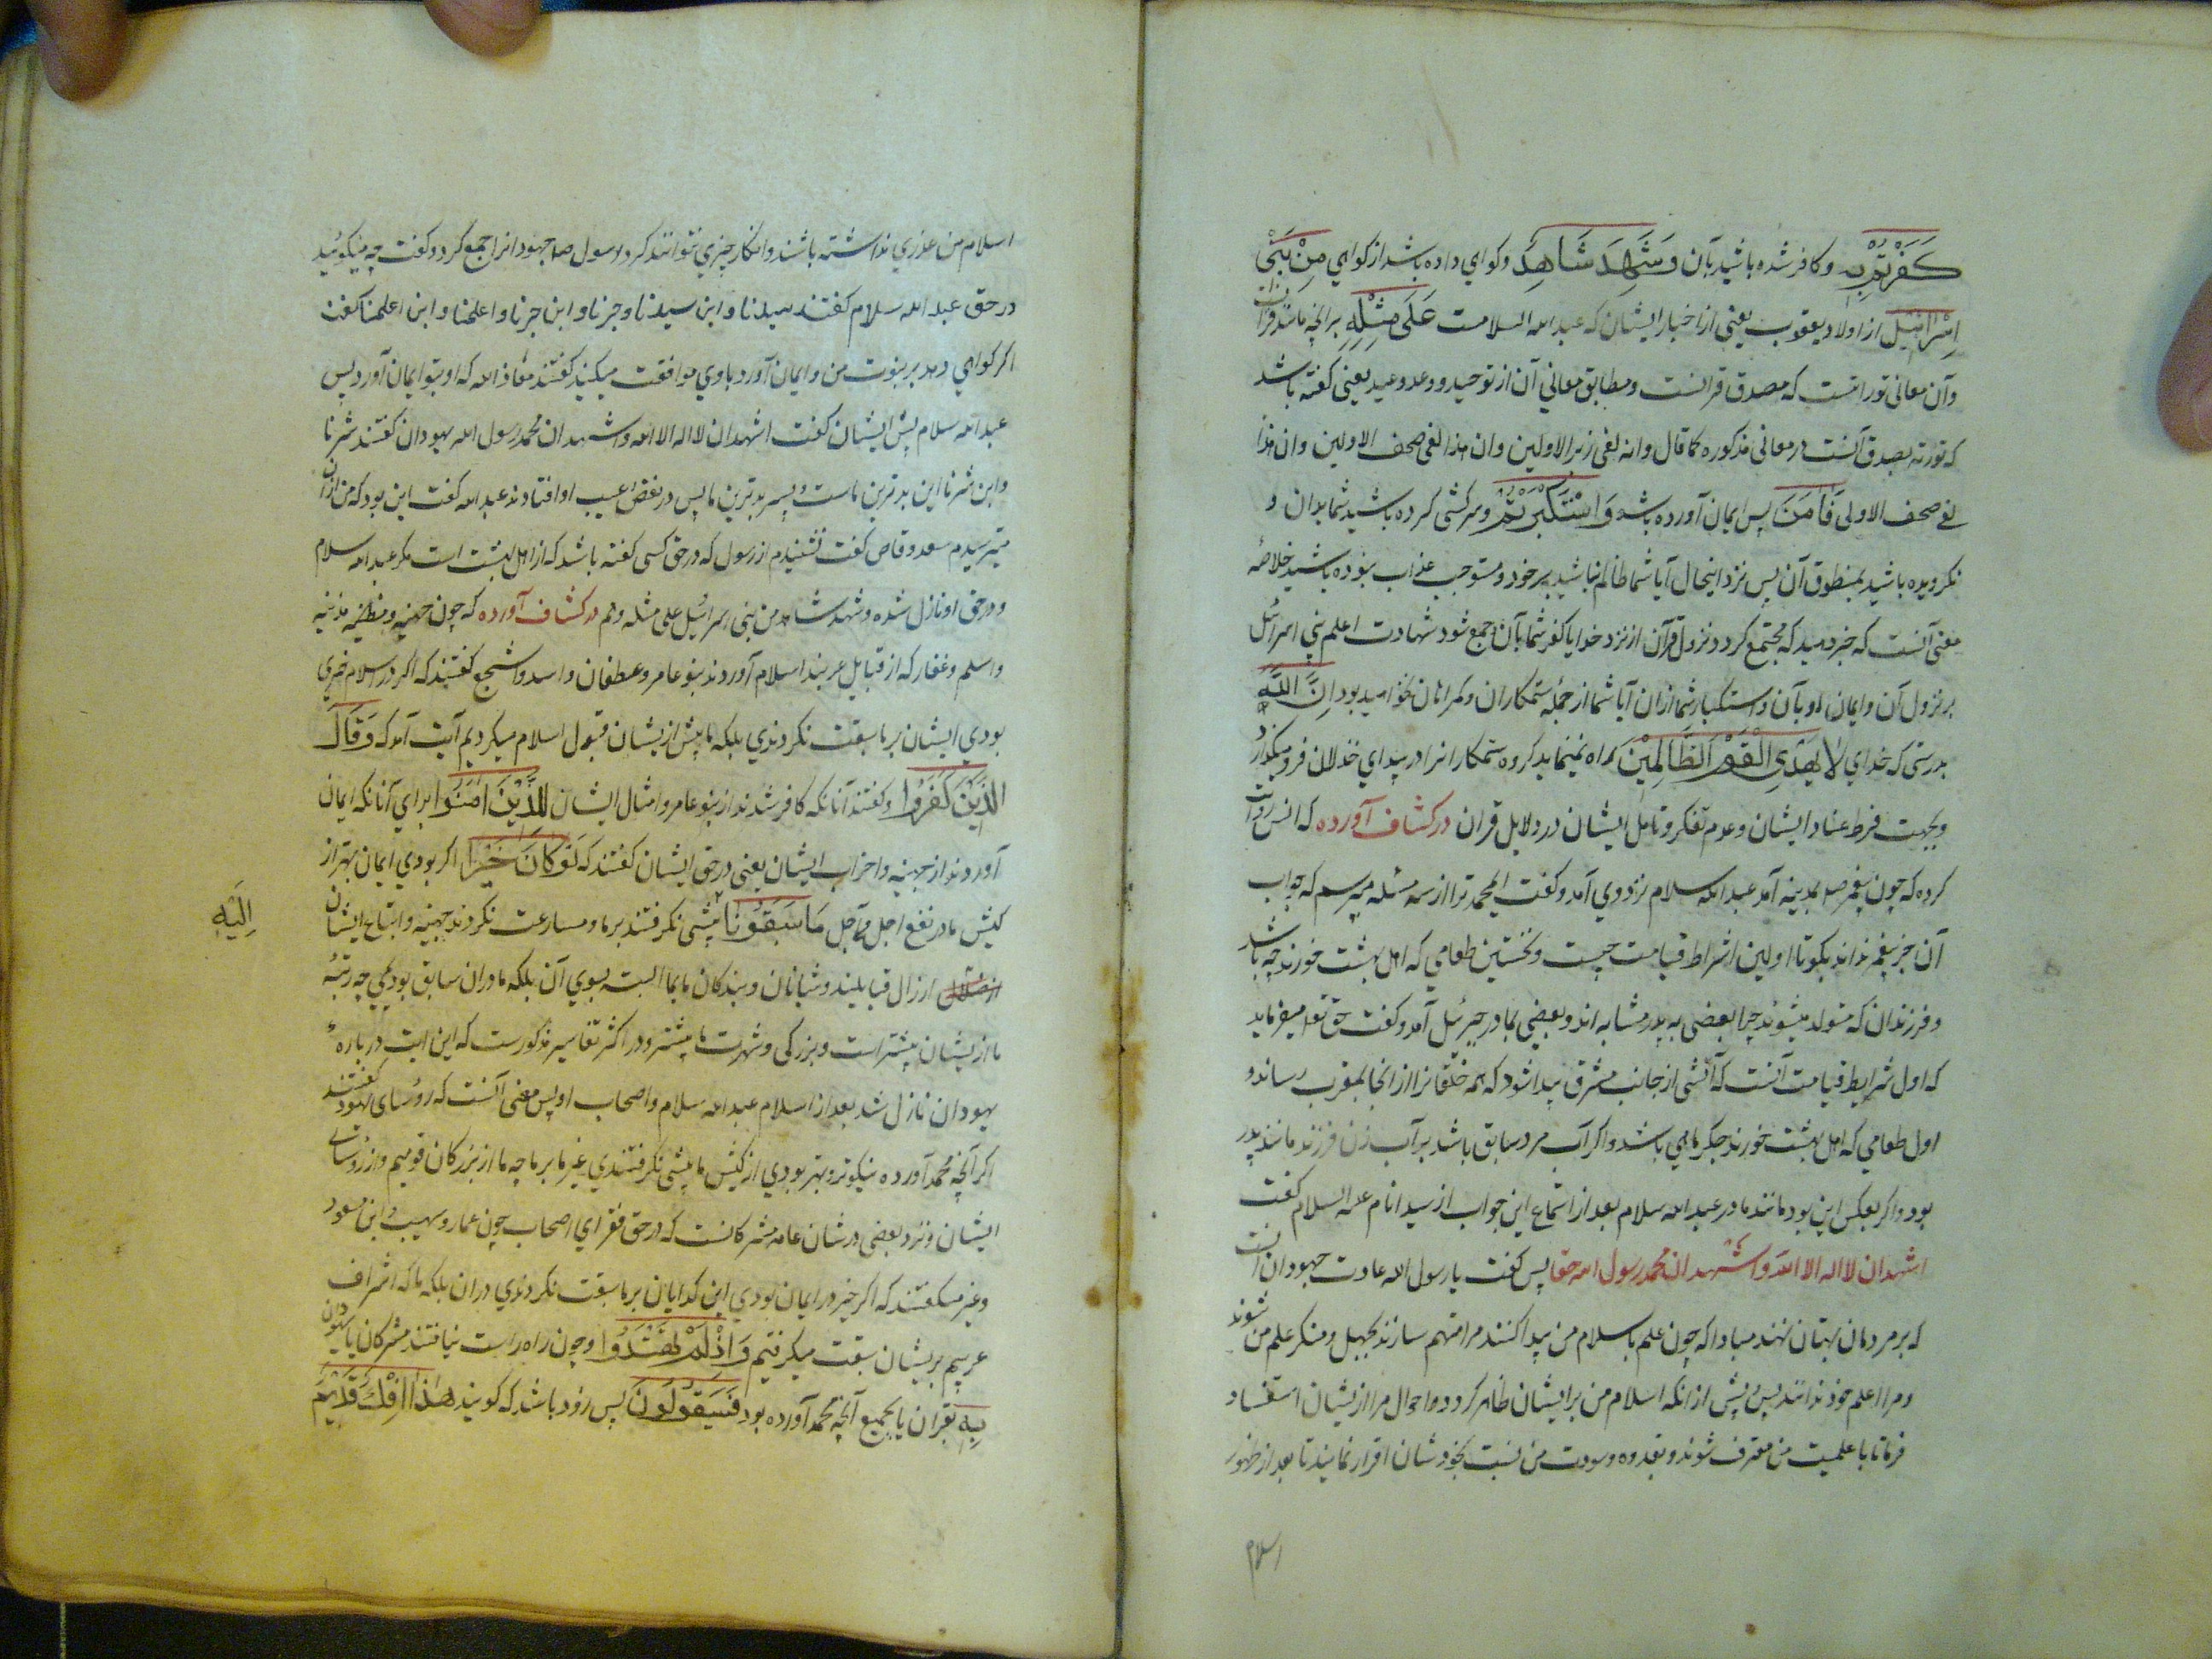 كَفَرْتُمْ بِهِ وکافر شده باشید بآن وَشَهِدَ شَاهِدٌ وکواهی داده باشد از کواهی مِنْ بَنِی
اِسْرَائِیلَ از اولاد یعقوب یعنی از اخبار ایشان که عبد الله السلامست عَلَی مِثْلِهِ بر انچه مانند قرآن
وآن معانی توراتست که مصدق قرانست ومطابق معانی آن از توحید ووعد ووعید یعنی کفته باشد
که توریة مصدق آنست در معانی مذکوره کما قال وانه لفی زبر الاولین وان هذا لفی صحف الاولین وان هذا
لفی صحف الاولی فَآمَنَ پس ایمان آورده باشد وَاسْتَکْبَرْتُمْ وسرکشی کرده باشید شما بدان و
نکرویده باشید بمنطوق آن پس نزد اینحال آیا شما ظالم نباشید بر خود ومستوجب عذاب نبوده باشید خلاصهٔ
معنی آنست که خبر دهید که مجتمع کردد نزول قرآن از نزد خدا یا کفر شما بآن وجمع شود شهادت اعلم بنی اسرائیل
بر نزول آن وایمان او بآن واستکبار شما ازان آیا شما از جملهٔ ستمکاران وکمراهان نخواهید بود اِنَّ اللّٰهَ
بدرستی که خدای لَا یَهْدِی الْقَوْمَ الظَّالِمِینَ راه نمینماید کروه ستمکارانرا در بیدای خذلان فرو میکذارد
وبجهت فرط عناد ایشان وعدم تفکر وتامل ایشان در دلایل قران در کشاف آورده که انس روایت
کرده که چون پیغمبر صلم بمدینه آمد عبد الله سلام نزد وی آمد وکفت ای محمد ترا از سه مسئله میپرسم که جواب
آن جز پیغمبر نداند بکو تا اولین اشراط قیامت چیست ونخستین طعامی که اهل بهشت خورند چه باشد
وفرزندان که متولد میشوند چرا بعضی به پدر مشابه اند وبعضی بمادر جبرئیل آمد وکفت حق تعلی میفرماید
که اول شرایط قیامت آنست که آتشی از جانب مشرق پیدا شود که همه خلقانرا از انجا بمغرب رساند و
اول طعامی که اهل بهشت خورند جکر ماهی باشد واکر آب مرد سابق باشد بر آب زن فرزند مانند پدر
بود واکر بعکس این بود مانند مادر عبد الله سلام بعد از استماع این جواب از سید انام علیه السلام کفت
اشهد ان لا اله الا الله واشهد ان محمد رسول الله حقا پس کفت یا رسول الله عادت جهودان آنست
که بر مردمان بهتان نهند مبادا که چون علم باسلام من پیدا کنند مرا متهم سازند بجهل ومنکر علم من شوند
ومرا اعلم خود ندانند پس پیش از انکه اسلام من بر ایشان ظاهر کردد احوال مرا از یشان استفسار
فرما تا با علمیت من معترف شوند وبقدوه وسودت من نسبت بخودشان اقرار نمایند تا بعد از ظهور
اسلام
اسلام من عذری نداشته باشند وانکار چیزی نتوانند کرد رسول صلم جهودانرا جمع کرد وکفت چه میکوئید
در حق عبد الله سلام کفتند سیدنا وابن سیدنا وحبرنا وابن حبرنا واعلمنا وابن اعلمنا کفت
اکر کواهی دهد بر نبوت من وایمان آورد باوی موافقت میکنید کفتند معاذ الله که او بتو ایمان آورد پس
عبد الله سلام پیش ایشان کفت اشهد ان لا اله الا الله واشهد ان محمد رسول الله یهودان کفتند شرنا
وابن شرنا این بدترین ماست وپسر بدترین ما پس در نغض عیب او افتادند عبد الله کفت این بود که من ازان
میترسیدم سعد وقاص کفت نشنیدم از رسول که در حق کسی کفته باشد که از اهل بهشت است مکر عبد الله سلام
ودر حق او نازل شده وشهد شاهد من بنی اسرائیل علی مثله وهم در کشاف آورده که چون جهینه ومزینه
واسلم وغفار که از قبایل عربند اسلام آوردند بنو عامر وغطفان واسد واشجع کفتند که اکر در اسلام خیری
بودی ایشان بر ما سبقت نکردندی بلکه ما پیش از یشان قبول اسلام میکردیم آیت آمد که وَقَالَ
الَّذِینَ کَفَرُوا وکفتند آنانکه کافر شدند از بنو عامر وامثال ایشان لِلَّذِینَ آمَنُوا برای آنانکه ایمان
آوردند از جهینه واحزاب ایشان یعنی در حق ایشان کفتند که لَوْ کَانَ خَیْرًا اکر بودی ایمان بهتر از
کیش ما در نفع اجل وعاجل مَا سَبَقُونَا پیشی نکرفتند بر ما ومسارعت نکردند جهینه واتباع ایشان
اِلَیْهِ
ارزال قبایلند وشبانان وبندکان ما بما البته بسوی آن بلکه ما دران سابق بودیمی چه رتبهٔ
ما از یشان پیشتر است وبزرکی وشهرت ما بیشتر ودر اکثر تفاسیر مذکورست که این ایت در بارهٔ
یهودان نازل شد بعد از اسلام عبد الله سلام واصحاب او پس معنی آنست که روسای یهود کفتند
اکر آنچه محمد آورده نیکوتر وبهتر بودی از کیش ما پیشی نکرفتندی غیر ما بر ما چه ما از بزرکان قومیم واز روسای
ایشان ونزد بعضی در شان عامه مشرکانست که در حق فقرای اصحاب چون عمار وصهیب وابن مسعود
وغیر میکفتند که اکر خیر در ایمان بودی این کدایان بر ما سبقت نکردندی دران بلکه ما که اشراف
عربیم بریشان سبقت میکرفتیم وَاِذْ لَمْ یَهْتَدُوا وچون راه راست نیافتند مشرکان یا یهودان
بِهِ بقران یا بجمیع آنچه محمد آورده بود فَسَیَقُولُونَ پس زود باشد که کویند هٰذَا اِفْکٌ قَدِیمٌ